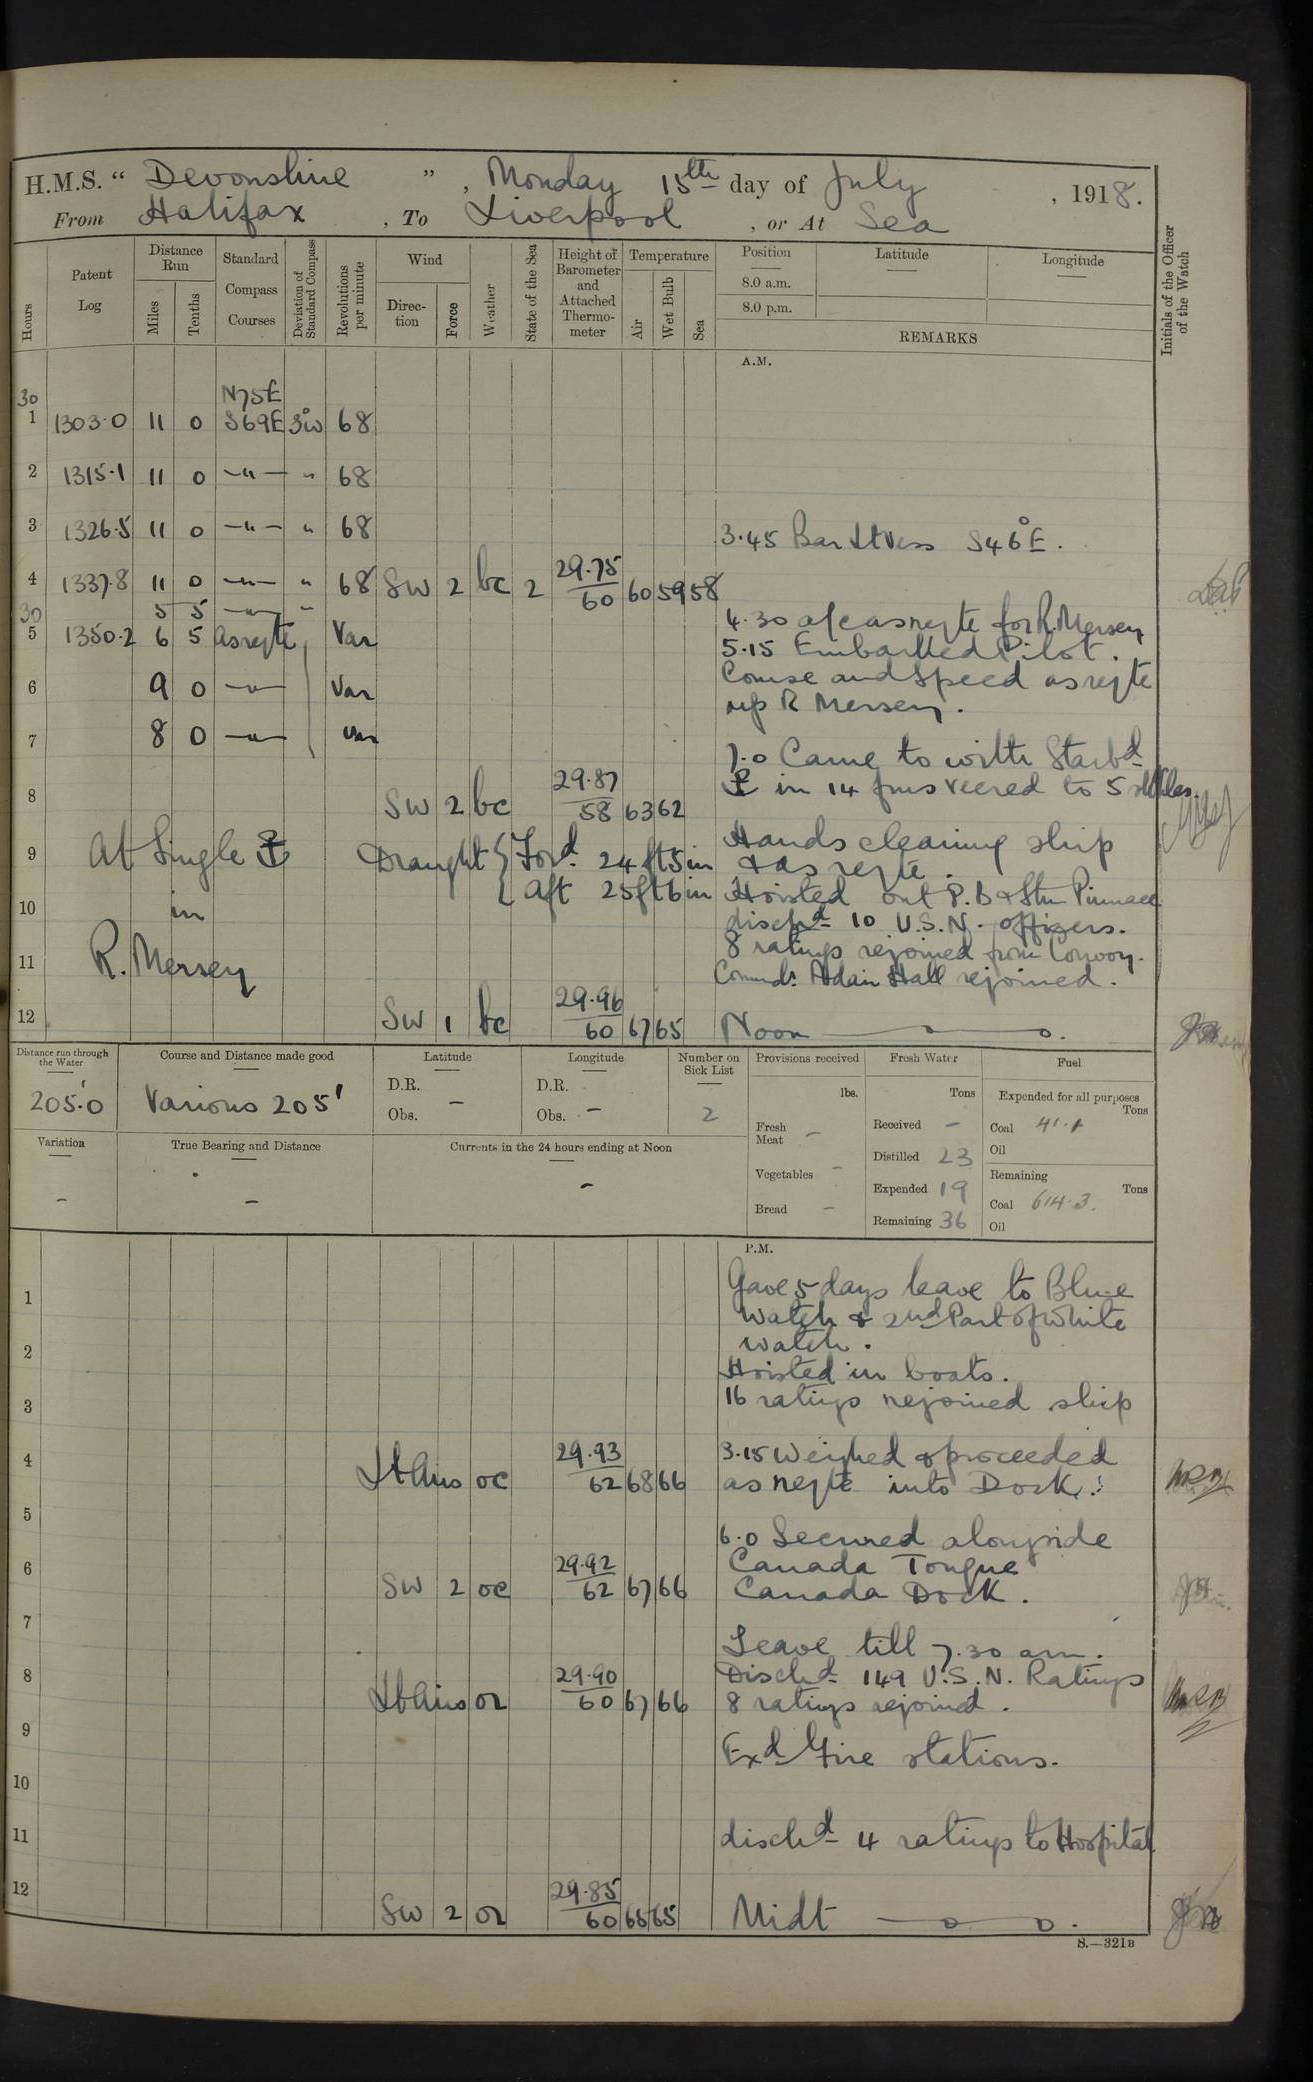 H.M.S. " Devonshire ", Monday 15th day of July, 1918.
From Halifax, To Liverpool, or At Sea
Hours
Patent Log
Distance Run
Miles
Tenths
Standard Compass Courses
Deviation of Standard Compass
Revolutions per minute
Wind
Direction
Force
Weather
State of the Sea
Height of Barometer and Attached Thermometer
Temperature
Air
Wet Bulb
Sea
Position
Latitude
Longitude
8.0 a.m.
8.0 p.m.
REMARKS
Initials of the Officer of the Watch
A.M.
30 N75E
1 1303.0 11 0 S69E 3°W 68
2 1315.1 11 0 —"— " 68
3 1326.5 11 0 —"— " 68
3.45 Bar Lt Vess S46°E.
4 1337.8 11 0 —"— " 68 SW 2 bc 2 29.75 60 60 59 58
30 5 5 —"— "
4.30 a/c as reqte for R. Mersey
5 1350.2 6 5 as reqte Var
5.15 Embarked Pilot.
6 9 0 —"— Var
Course and Speed as reqte
up R Mersey.
7 8 0 —"— Var
7.0 Came to with Starbd
⚓ in 14 fms veered to 5 shkles.
8 SW 2 bc 29.87 58 63 62
9 At Single ⚓
Draught { Ford 24 ft 5 in
Hands cleaning ship
& as reqte.
{ Aft 25 ft 6 in
10 in
Hoisted out P.B & Stm Pinnace
dischd 10 U.S.N. officers.
11 R. Mersey
8 ratings rejoined from Convoy.
Commdr Adair Hall rejoined.
12 SW 1 bc 29.96 60 67 65 Noon
Distance run through the Water
205.0'
Course and Distance made good
Various 205'
Latitude
D.R.
Obs. —
Longitude
D.R.
Obs. —
Number on Sick List
2
Provisions received
lbs.
Fresh Meat —
Vegetables —
Bread —
Fresh Water
Tons
Received —
Distilled 23
Expended 19
Remaining 36
Fuel
Expended for all purposes
Tons
Coal 41.1
Oil
Remaining
Tons
Coal 614.3.
Oil
Variation
—
True Bearing and Distance
—
Currents in the 24 hours ending at Noon
—
P.M.
1 Gave 5 days leave to Blue
Watch & 2nd Part of White
2 watch.
Hoisted in boats.
3 16 ratings rejoined ship
4 Lt Airs oc 29.93 62 68 66
3.15 Weighed & proceeded
as reqte into Dock.
5
6.0 Secured alongside
Canada Tongue
6 SW 2 oc 29.92 62 67 66
Canada Dock.
7
Leave till 7.30 am.
8 Lt Airs or 29.90 60 67 66
Dischd 149 U.S.N. Ratings
8 ratings rejoined.
9
Exd Fire stations.
10
11 dischd 4 ratings to Hospital
12 SW 2 or 29.85 60 65 65 Midt
S.—321B